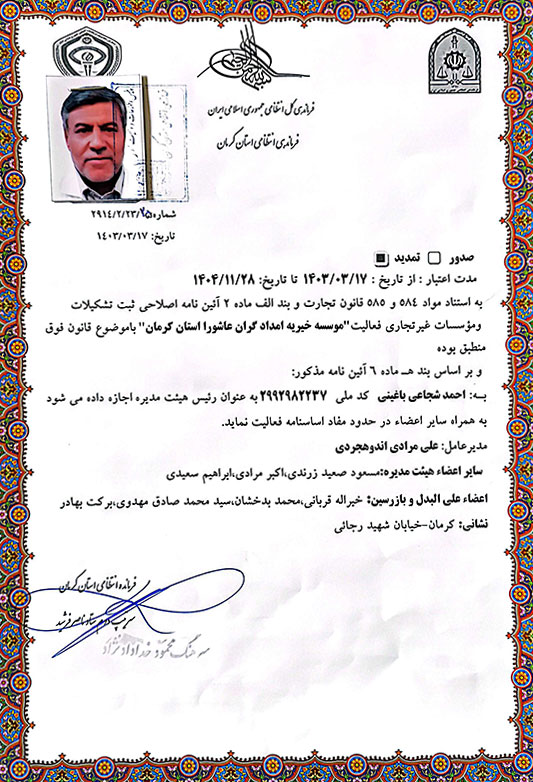 فرماندهی کل انتظامی جمهوری اسلامی ایران
فرماندهی انتظامی استان کرمان
شماره ۲۹۱۴/۲/۲۳/۲۵
تاریخ: ۱۴۰۳/۰۳/۱۷
صدور تمدید
مدت اعتبار : از تاریخ : ۱۴۰۳/۰۳/۱۷ تا تاریخ: ۱۴۰۴/۱۱/۲۸
به استناد مواد ۵۸٤ و ۵۸۵ قانون تجارت و بند الف ماده ۲ آئین نامه اصلاحی ثبت تشکیلات
ومؤسسات غیرتجاری فعالیت"موسسه خیریه امداد گران عاشورا استان کرمان" باموضوع قانون فوق
منطبق بوده
و بر اساس بند هـ ماده ٦ آئین نامه مذکور:
بـه: احمد شجاعی باغینی کد ملی ۲۹۹۲۹۸۲۲۳۷ به عنوان رئیس هیئت مدیره اجازه داده می شود
به همراه سایر اعضاء در حدود مفاد اساسنامه فعالیت نماید.
مدیرعامل: علی مرادی اندوهجردی
سایر اعضاء هیئت مدیره:مسعود صعید زرندی،اکبر مرادی،ابراهیم سعیدی
اعضاء علی البدل و بازرسین: خیراله قربانی،محمد بدخشان،سید محمد صادق مهدوی،برکت بهادر
نشانی: کرمان-خیابان شهید رجائی
فرمانده انتظامی استان کرمان
سرتیپ دوم ستاد ناصر فرشید
سرهنگ محمود خدادادنژاد